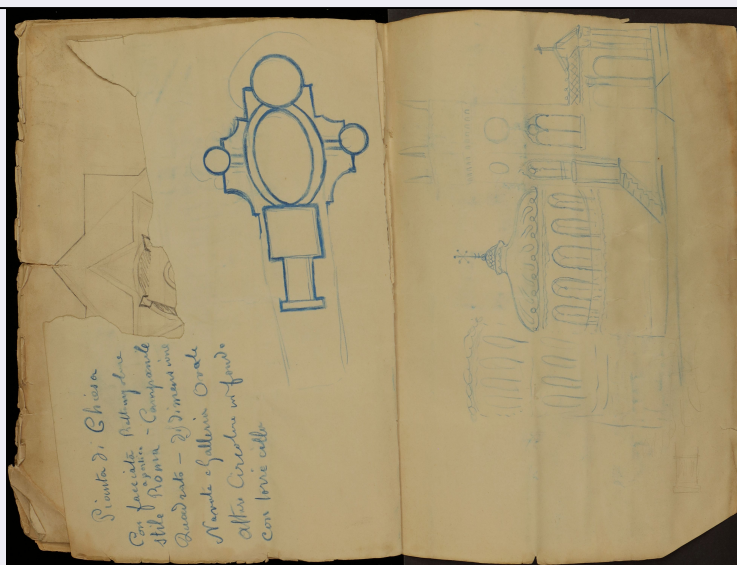 Pianta di Chiesa
Con facciata Rettangolare
a portico
stile Roma - Campanile
Quadrato - di dimensione
Navata e Galleria Ovale
altare Circolare in fondo
con torri